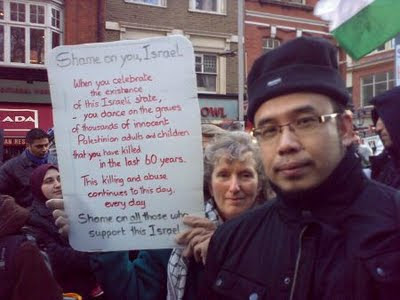 Shame on you, Israel.
When you celebrate
the existence
of this Israeli state,
- you dance on the graves
of thousands of innocent
Palestinian adults and children
that you have killed
in the last 60 years.
This killing and abuse
continues to this day,
every day
Shame on all those who
support this Israel
ADA
OWL